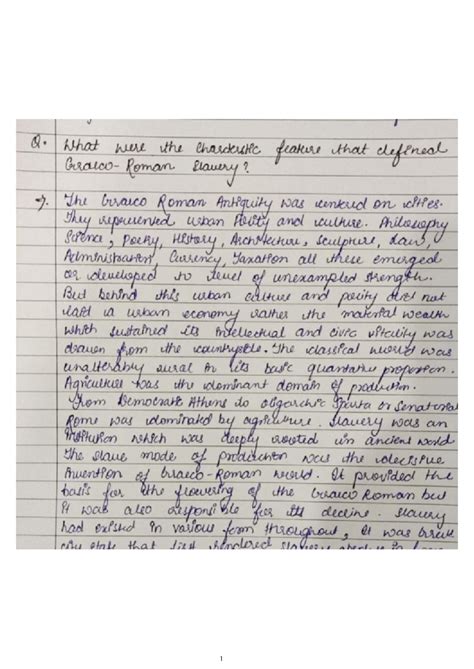 Q. What were the charderstic feature that defined
Graeco-Roman Slavery?
→. The Graeco Roman Antiquity was centered on cities.
They represented urban Polity and culture. Philosophy
Science, Poetry, History, Architecture, Sculpture, Law,
Administration, Currency, Taxation all these emerged
or developed to level of unexampled strength.
But behind this urban culture and polity does not
laid a urban economy rather the material wealth
which sustained its intellectual and civic vitality was
drawn from the countryside. The classical world was
unalterably rural in its basic quantative proportion.
Agriculture was the dominant domain of production.
From Democratic Athens to oligarchic Sparta or Senatorial
Rome was dominated by agriculture. Slavery was an
Institution which was deeply rooted in ancient world
The slave mode of production was the decisive
invention of Graeco-Roman world. It provided the
basis for the flowering of the Graeco Roman but
it was also responsible for its decline. Slavery
had existed in various form throughout, it was Greek
city state that first rendered slavery
1